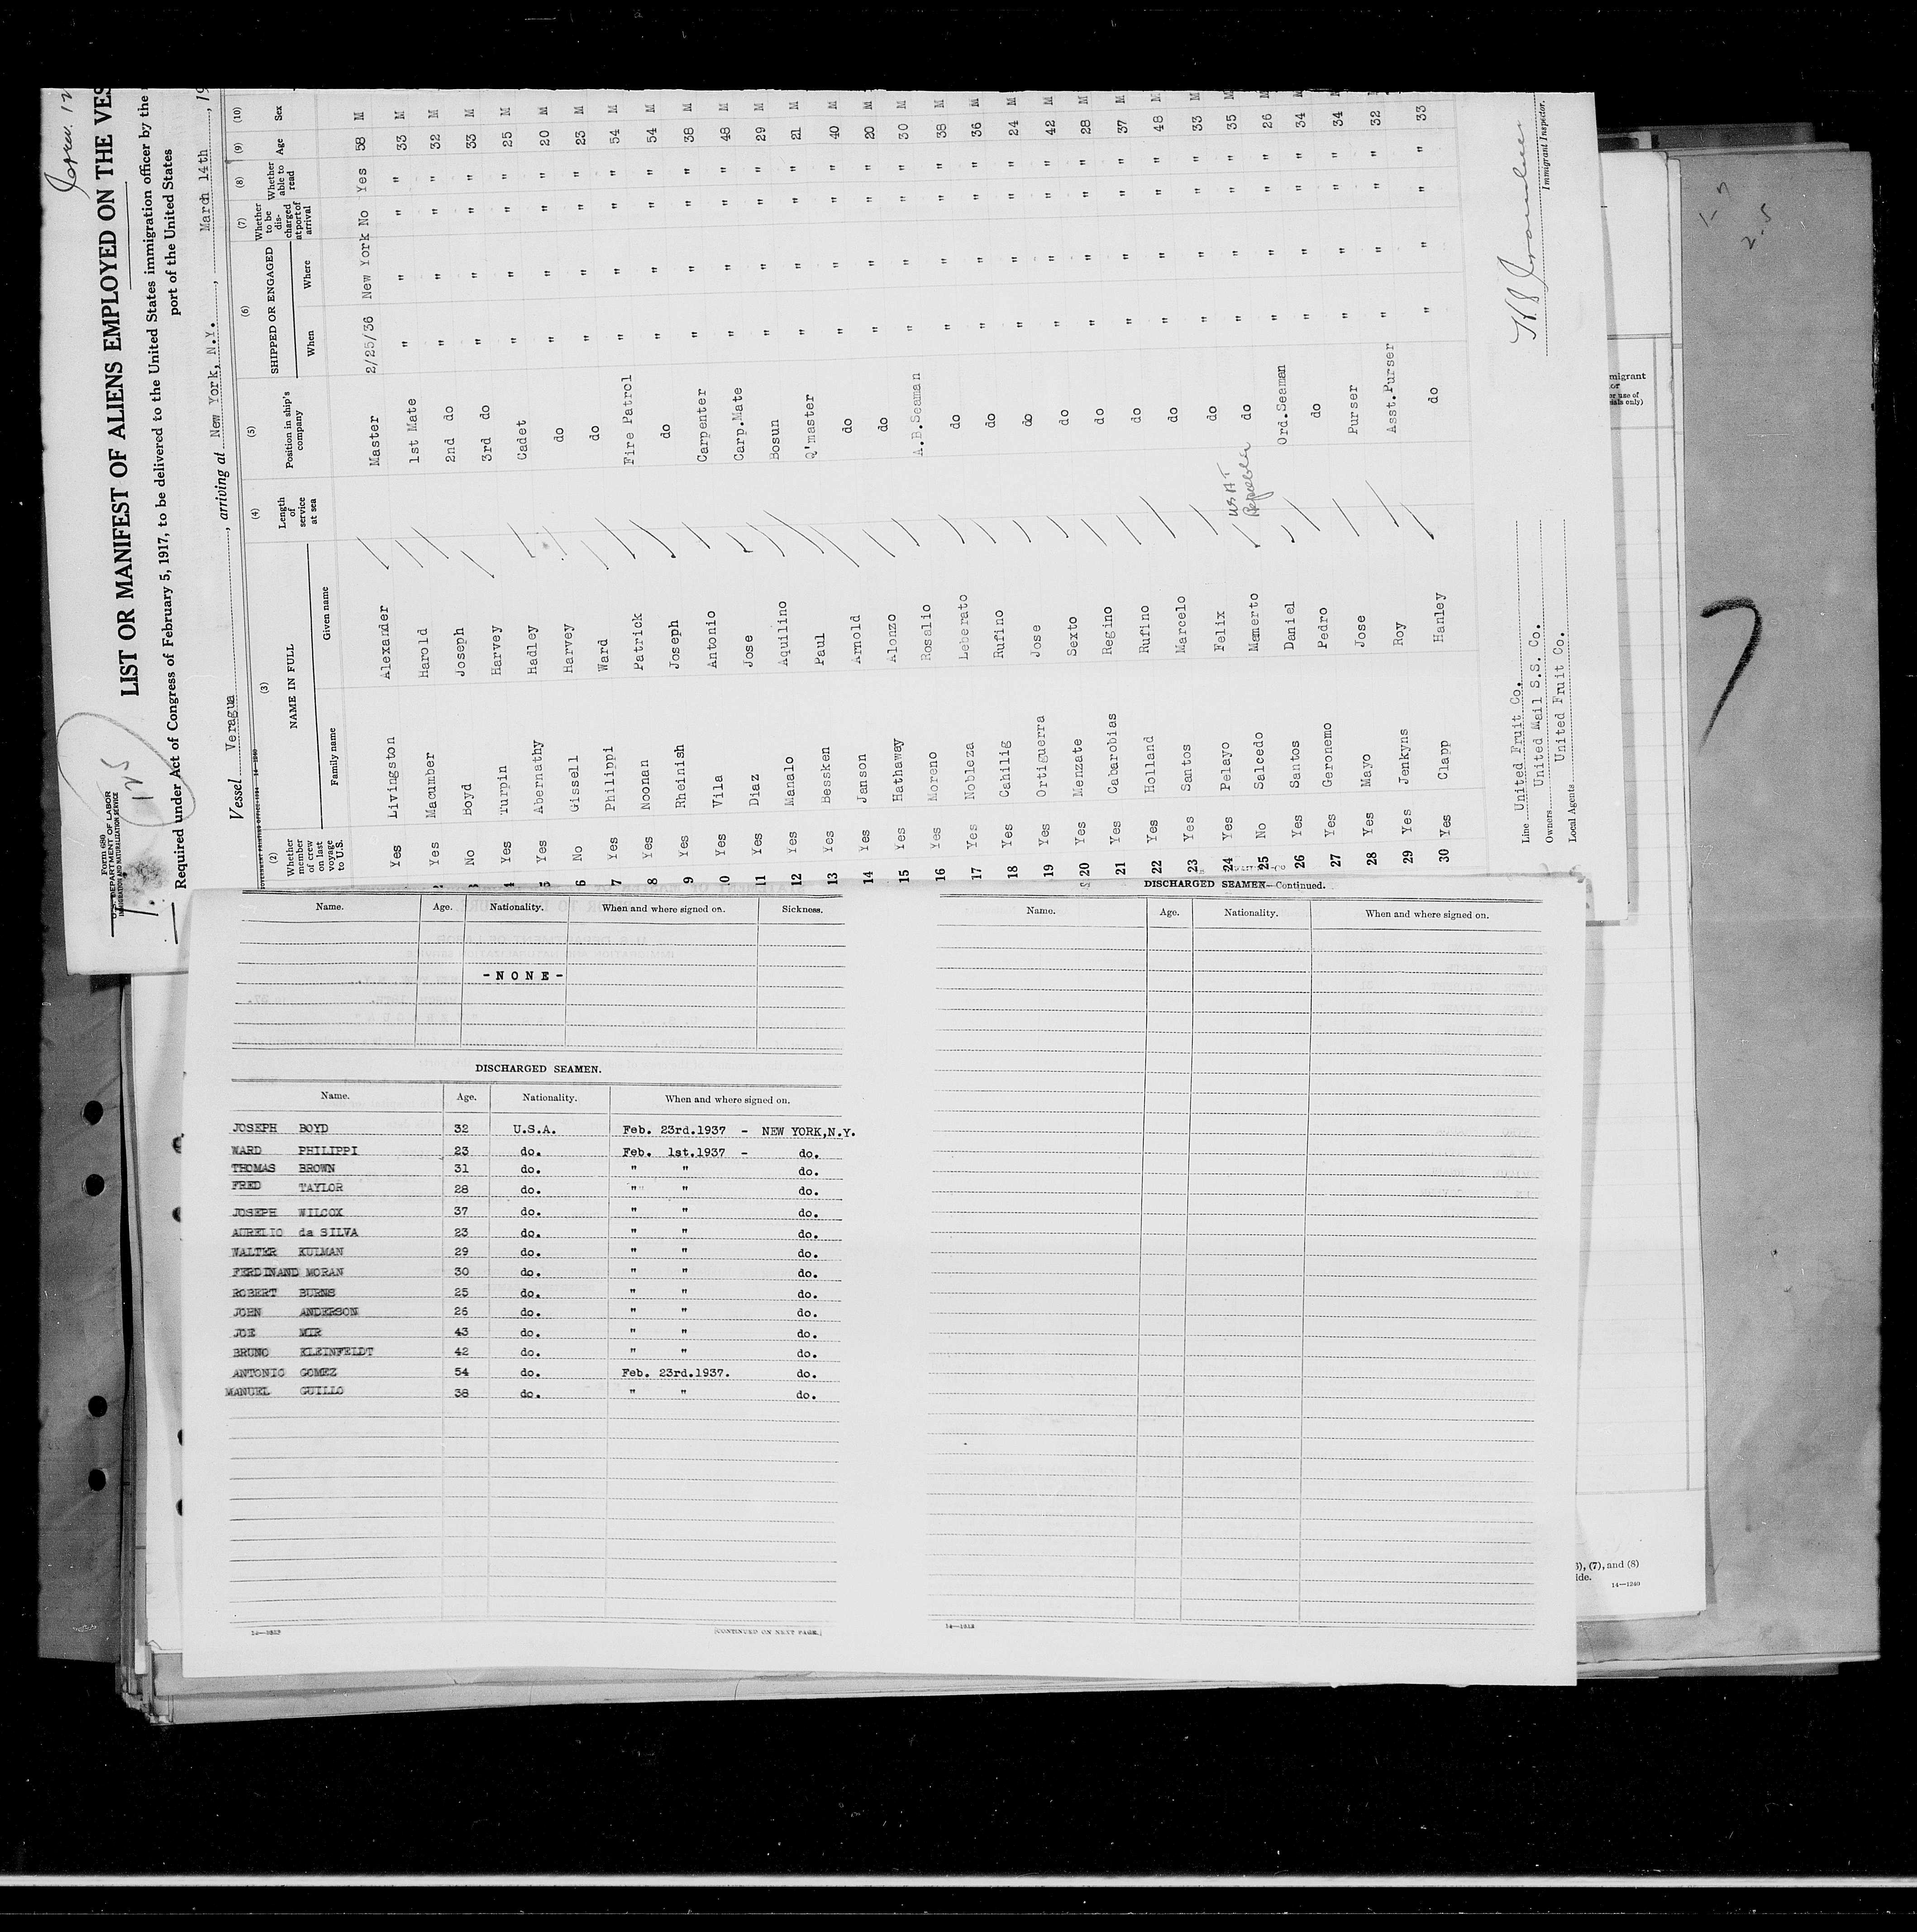 Form 689
U.S. DEPARTMENT OF LABOR
IMMIGRATION AND NATURALIZATION SERVICE
125
LIST OR MANIFEST OF ALIENS EMPLOYED ON THE VES
Required under Act of Congress of February 5, 1917, to be delivered to the United States immigration officer by the
port of the United States
Vessel Veragua, arriving at New York, N.Y., March 14th, 19
(2) (3) (4) (5) (6) (7) (8) (9) (10)
Whether member of crew on last voyage to U.S. NAME IN FULL Family name Given name Length of service at sea Position in ship's company SHIPPED OR ENGAGED When Where Whether to be discharged at port of arrival Whether able to read Age Sex
Yes Livingston Alexander Master 2/25/36 New York No Yes 58 M
Yes Macumber Harold 1st Mate " " " " 33 M
No Boyd Joseph 2nd do " " " " 32 M
4 Yes Turpin Harvey 3rd do " " " " 33 M
5 Yes Abernathy Hadley Cadet " " " " 25 M
6 No Gissell Harvey do " " " " 20 M
7 Yes Philippi Ward do " " " " 23 M
8 Yes Noonan Patrick Fire Patrol " " " " 54 M
9 Yes Rheinish Joseph do " " " " 54 M
10 Yes Vila Antonio Carpenter " " " " 38 M
11 Yes Diaz Jose Carp.Mate " " " " 48 M
12 Yes Manalo Aquilino Bosun " " " " 29 M
13 Yes Bessken Paul Q'master " " " " 21 M
14 Yes Janson Arnold do " " " " 40 M
15 Yes Hathaway Alonzo do " " " " 20 M
16 Yes Moreno Rosalio A.B.Seaman " " " " 30 M
17 Yes Nobleza Leberato do " " " " 38 M
18 Yes Cahilig Rufino do " " " " 36 M
19 Yes Ortiguerra Jose do " " " " 24 M
20 Yes Menzate Sexto do " " " " 42 M
21 Yes Cabarobias Regino do " " " " 28 M
22 Yes Holland Rufino do " " " " 37 M
23 Yes Santos Marcelo do " " " " 48 M
24 Yes Pelayo Felix do " " " " 33 M
25 No Salcedo Mamerto do " " " " 35 M
26 Yes Santos Daniel Ord.Seaman " " " " 26 M
27 Yes Geronemo Pedro do " " " " 34 M
28 Yes Mayo Jose Purser " " " " 34 M
29 Yes Jenkyns Roy Asst.Purser " " " " 32 M
30 Yes Clapp Hanley do " " " " 33
Line United Fruit Co.
Owners United Mail S.S. Co.
Local Agents United Fruit Co.
Immigrant Inspector.
Name. Age. Nationality. When and where signed on. Sickness.
-NONE-
DISCHARGED SEAMEN.
Name. Age. Nationality. When and where signed on.
JOSEPH BOYD 32 U.S.A. Feb. 23rd.1937 - NEW YORK,N.Y.
WARD PHILIPPI 23 do. Feb. 1st.1937 - do.
THOMAS BROWN 31 do. " " do.
FRED TAYLOR 28 do. " " do.
JOSEPH WILCOX 37 do. " " do.
AURELIO da SILVA 23 do. " " do.
WALTER KULMAN 29 do. " " do.
FERDINAND MORAN 30 do. " " do.
ROBERT BURNS 25 do. " " do.
JOHN ANDERSON 26 do. " " do.
JOE MIR 43 do. " " do.
BRUNO KLEINFELDT 42 do. " " do.
ANTONIO GOMEZ 54 do. Feb. 23rd.1937. do.
MANUEL GUILLO 38 do. " " do.
[CONTINUED ON NEXT PAGE.]
DISCHARGED SEAMEN—Continued.
Name. Age. Nationality. When and where signed on.
14—1313
), (7), and (8)
ide.
14—1240
7